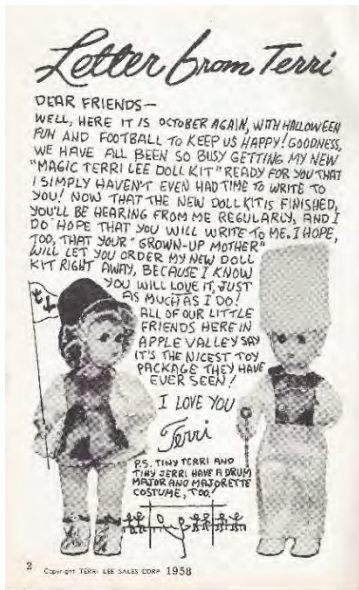 Letter from Terri
DEAR FRIENDS—
WELL, HERE IT IS OCTOBER AGAIN, WITH HALLOWEEN
FUN AND FOOTBALL TO KEEP US HAPPY! GOODNESS,
WE HAVE ALL BEEN SO BUSY GETTING MY NEW
"MAGIC TERRI LEE DOLL KIT" READY FOR YOU THAT
I SIMPLY HAVEN'T EVEN HAD TIME TO WRITE TO
YOU! NOW THAT THE NEW DOLL KIT IS FINISHED,
YOU'LL BE HEARING FROM ME REGULARLY, AND I
DO HOPE THAT YOU WILL WRITE TO ME. I HOPE,
TOO, THAT YOUR "GROWN-UP MOTHER"
WILL LET YOU ORDER MY NEW DOLL
KIT RIGHT AWAY, BECAUSE I KNOW
YOU WILL LOVE IT, JUST
AS MUCH AS I DO!
ALL OF OUR LITTLE
FRIENDS HERE IN
APPLE VALLEY SAY
IT'S THE NICEST TOY
PACKAGE THEY HAVE
EVER SEEN!
I LOVE YOU
Terri
P.S. TINY TERRI AND
TINY JERRI HAVE A DRUM
MAJOR AND MAJORETTE
COSTUME, TOO!
2 Copyright TERRI LEE SALES CORP. 1958